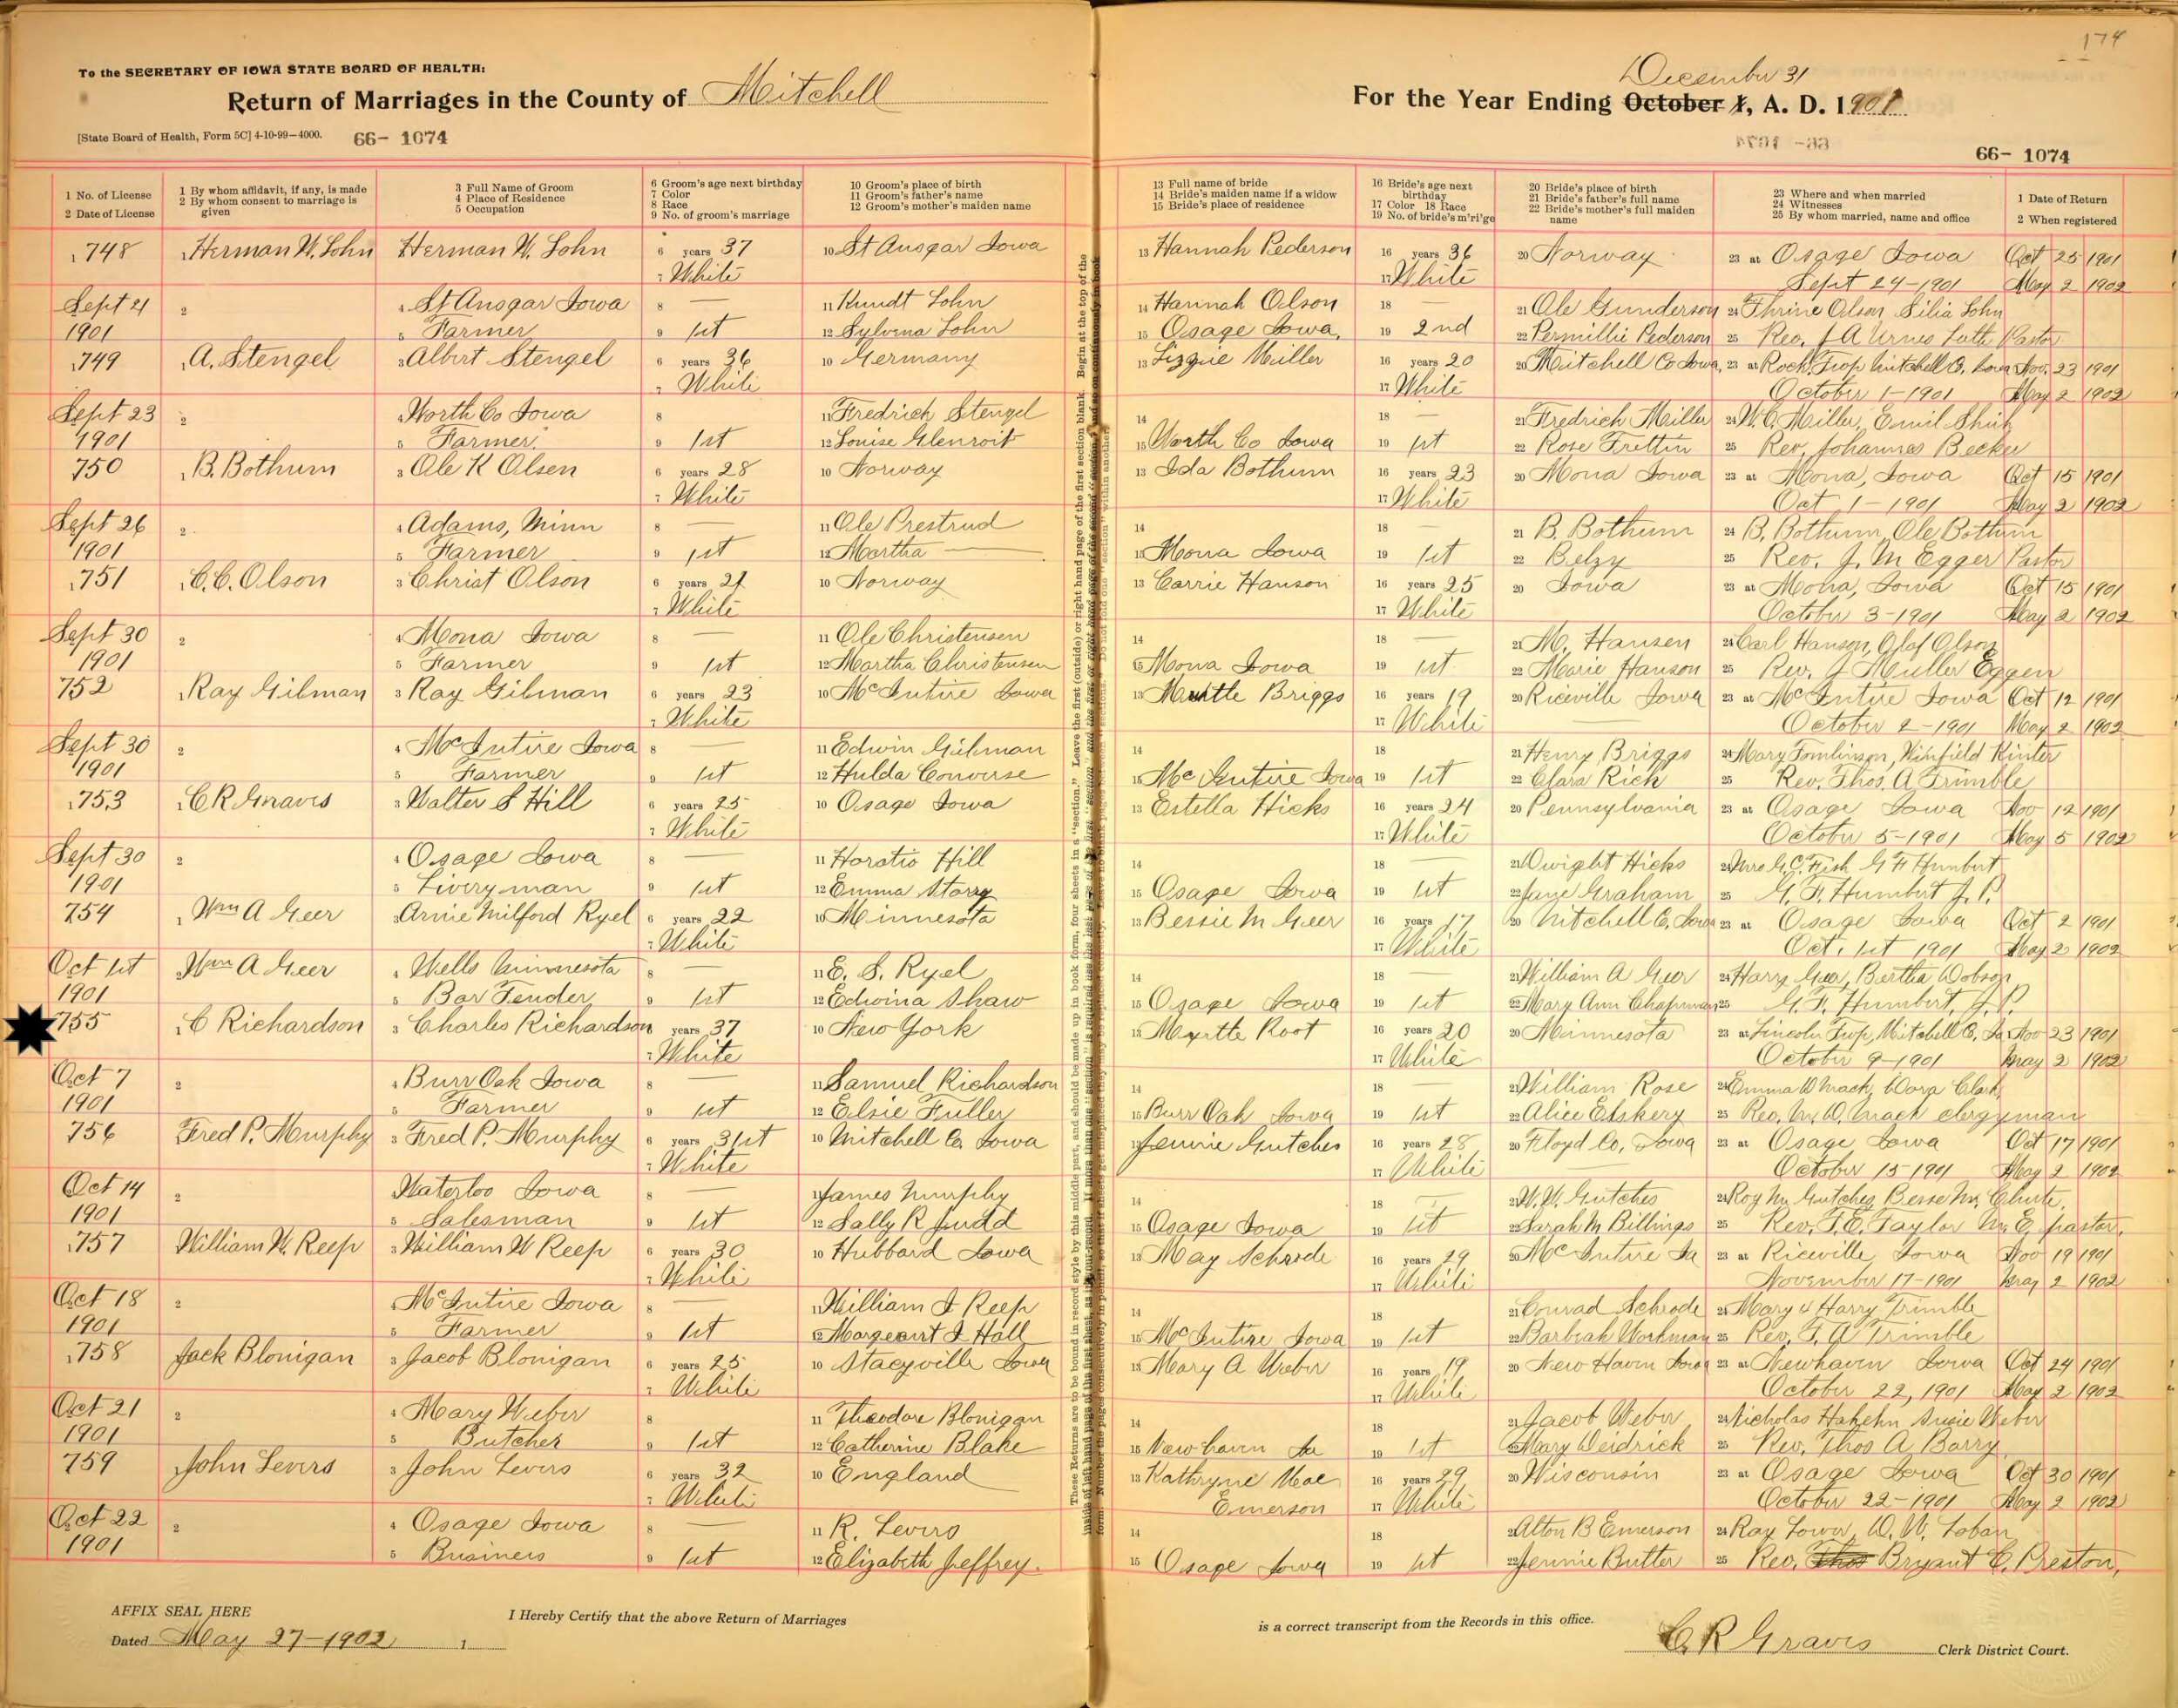 174
To the SECRETARY OF IOWA STATE BOARD OF HEALTH:
Return of Marriages in the County of Mitchell
[State Board of Health, Form 5C] 4-10-99—4000. 66- 1074
December 31
For the Year Ending October 1, A. D. 1901
66- 1074
1 No. of License
2 Date of License
1 By whom affidavit, if any, is made
2 By whom consent to marriage is given
3 Full Name of Groom
4 Place of Residence
5 Occupation
6 Groom's age next birthday
7 Color
8 Race
9 No. of groom's marriage
10 Groom's place of birth
11 Groom's father's name
12 Groom's mother's maiden name
13 Full name of bride
14 Bride's maiden name if a widow
15 Bride's place of residence
16 Bride's age next birthday
17 Color 18 Race
19 No. of bride's m'ri'ge
20 Bride's place of birth
21 Bride's father's full name
22 Bride's mother's full maiden name
23 Where and when married
24 Witnesses
25 By whom married, name and office
1 Date of Return
2 When registered
1 748 1 Herman W. Sohn Herman W. Sohn 6 years 37 10 St Ansgar Iowa 13 Hannah Pederson 16 years 36 20 Norway 23 at Osage Iowa Oct 25 1901
7 White 17 White Sept 24-1901 May 2 1902
Sept 21 2 4 St Ansgar Iowa 8 — 11 Kundt Sohn 14 Hannah Olson 18 — 21 Ole Gunderson 24 Thrine Olson Silia Sohn
1901 5 Farmer 9 1st 12 Sylvina Sohn 15 Osage Iowa, 19 2nd 22 Permillie Pederson 25 Rev. J A Urnes Luth Pastor
1 749 1 A. Stengel 3 Albert Stengel 6 years 36 10 Germany 13 Lizzie Miller 16 years 20 20 Mitchell Co Iowa, 23 at Rock Twp Mitchell Co. Iowa Nov. 23 1901
7 White 17 White October 1-1901 May 2 1902
Sept 23 2 4 Worth Co Iowa 8 11 Fredrich Stengel 14 18 — 21 Fredrich Miller 24 W. C. Miller, Emil
1901 5 Farmer 9 1st 12 Louise Glenroit 15 Worth Co Iowa 19 1st 22 Rose Trettin 25 Rev. Johannes Becker
750 1 B. Bothum 3 Ole K Olsen 6 years 28 10 Norway 13 Ida Bothum 16 years 23 20 Mona Iowa 23 at Mona, Iowa Oct 15 1901
7 White 17 White Oct 1-1901 May 2 1902
Sept 26 2 4 Adams, Minn 8 — 11 Ole Prestrud 14 18 — 21 B. Bothum 24 B. Bothum, Ole Bothum
1901 5 Farmer 9 1st 12 Martha — 15 Mona Iowa 19 1st 22 Betzy 25 Rev. J. M Egger Pastor
1 751 1 C. C. Olson 3 Christ Olson 6 years 21 10 Norway 13 Carrie Hanson 16 years 25 20 Iowa 23 at Mona, Iowa Oct 15 1901
7 White 17 White October 3-1901 May 2 1902
Sept 30 2 4 Mona Iowa 8 — 11 Ole Christensen 14 18 — 21 M. Hansen 24 Carl Hanson, Olaf Olson
1901 5 Farmer 9 1st 12 Martha Christensen 15 Mona Iowa 19 1st 22 Marie Hanson 25 Rev. J Muller Eggen
752 1 Ray Gilman 3 Ray Gilman 6 years 23 10 McIntire Iowa 13 Myrtle Briggs 16 years 19 20 Riceville Iowa 23 at McIntire Iowa Oct 12 1901
7 White 17 White October 2-1901 May 2 1902
Sept 30 2 4 McIntire Iowa 8 — 11 Edwin Gilman 14 18 21 Henry Briggs 24 Mary Tomlinson, Winfield Kinter
1901 5 Farmer 9 1st 12 Hulda Converse 15 McIntire Iowa 19 1st 22 Clara Rich 25 Rev. Thos. A Trimble
1 753 1 C R Graves 3 Walter S Hill 6 years 25 10 Osage Iowa 13 Estella Hicks 16 years 24 20 Pennsylvania 23 at Osage Iowa Nov 12 1901
7 White 17 White October 5-1901 May 5 1902
Sept 30 2 4 Osage Iowa 8 — 11 Horatio Hill 14 18 — 21 Dwight Hicks 24 Mrs G. C. Fish G F Humbert
1901 5 Liveryman 9 1st 12 Emma Starry 15 Osage Iowa 19 1st 22 Jane Graham 25 G. F. Humbert J. P.
754 1 Wm A Geer 3 Arnie Milford Ryel 6 years 22 10 Minnesota 13 Bessie M Geer 16 years 17 20 Mitchell Co. Iowa 23 at Osage Iowa Oct 2 1901
7 White 17 White Oct. 1st 1901 May 2 1902
Oct 1st 2 Wm A Geer 4 Wells Minnesota 8 — 11 E. S. Ryel 14 18 — 21 William A Geer 24 Harry Geer, Bertha Dobson
1901 5 Bar Tender 9 1st 12 Edwina Shaw 15 Osage Iowa 19 1st 22 Mary Ann Chapman 25 G. F. Humbert, J. P.
755 1 C Richardson 3 Charles Richardson 6 years 37 10 New York 13 Myrtle Root 16 years 20 20 Minnesota 23 at Lincoln Twp, Mitchell Co. Ia Nov 23 1901
7 White 17 White October 9-1901 May 2 1902
Oct 7 2 4 Burr Oak Iowa 8 — 11 Samuel Richardson 14 18 — 21 William Rose 24 Emma W Mack, Dora Clark
1901 5 Farmer 9 1st 12 Elsie Fuller 15 Burr Oak Iowa 19 1st 22 Alice Elskery 25 Rev. W. Mack clergyman
756 Fred P. Murphy 3 Fred P. Murphy 6 years 31st 10 Mitchell Co. Iowa 13 Jennie Gutches 16 years 28 20 Floyd Co, Iowa 23 at Osage Iowa Oct 17 1901
7 White 17 White October 15-1901 May 2 1902
Oct 14 2 Waterloo Iowa 8 — 11 James Murphy 14 18 — 21 W. W. Gutches 24 Roy M. Gutches, Besse M.
1901 5 Salesman 9 1st 12 Sally R Judd 15 Osage Iowa 19 1st 22 Sarah M Billings 25 Rev. F. E. Taylor M. E. pastor.
1 757 William W. Reep 3 William W Reep 6 years 30 10 Hubbard Iowa 13 May Schrode 16 years 29 20 McIntire Ia 23 at Riceville Iowa Nov 19 1901
7 White 17 White November 17-1901 May 2 1902
Oct 18 2 McIntire Iowa 8 — 11 William I Reep 14 18 21 Conrad Schrode 24 Mary & Harry Trimble
1901 5 Farmer 9 1st 12 Margearit I Hall 15 McIntire Iowa 19 1st 22 Barbrah Workman 25 Rev. T. A Trimble
1 758 Jack Blonigan 3 Jacob Blonigan 6 years 25 10 Stacyville Iowa 13 Mary A Weber 16 years 19 20 New Haven Iowa 23 at Newhaven Iowa Oct 24 1901
7 White 17 White October 22, 1901 May 2 1902
Oct 21 2 4 Mary Weber 8 11 Theodore Blonigan 14 18 21 Jacob Weber 24 Nicholas Susie Weber
1901 5 Butcher 9 1st 12 Catherine Blake 15 Newhaven Ia 19 1st 22 Mary Deidrick 25 Rev. Thos A Barry
759 John Levers 3 John Levers 6 years 32 10 England 13 Kathryne Mae 16 years 29 20 Wisconsin 23 at Osage Iowa Oct 30 1901
7 White Emerson 17 White October 22-1901 May 2 1902
Oct 22 2 4 Osage Iowa 8 — 11 R. Levers 14 18 21 Alton B Emerson 24 Ray Lower, W. W. Loban
1901 5 Business 9 1st 12 Elizabeth Jeffrey. 15 Osage Iowa 19 1st 22 Jennie Butter 25 Rev. Thos Bryant C. Preston,
AFFIX SEAL HERE
Dated May 27-1902 1
I Hereby Certify that the above Return of Marriages is a correct transcript from the Records in this office.
C R Graves Clerk District Court.